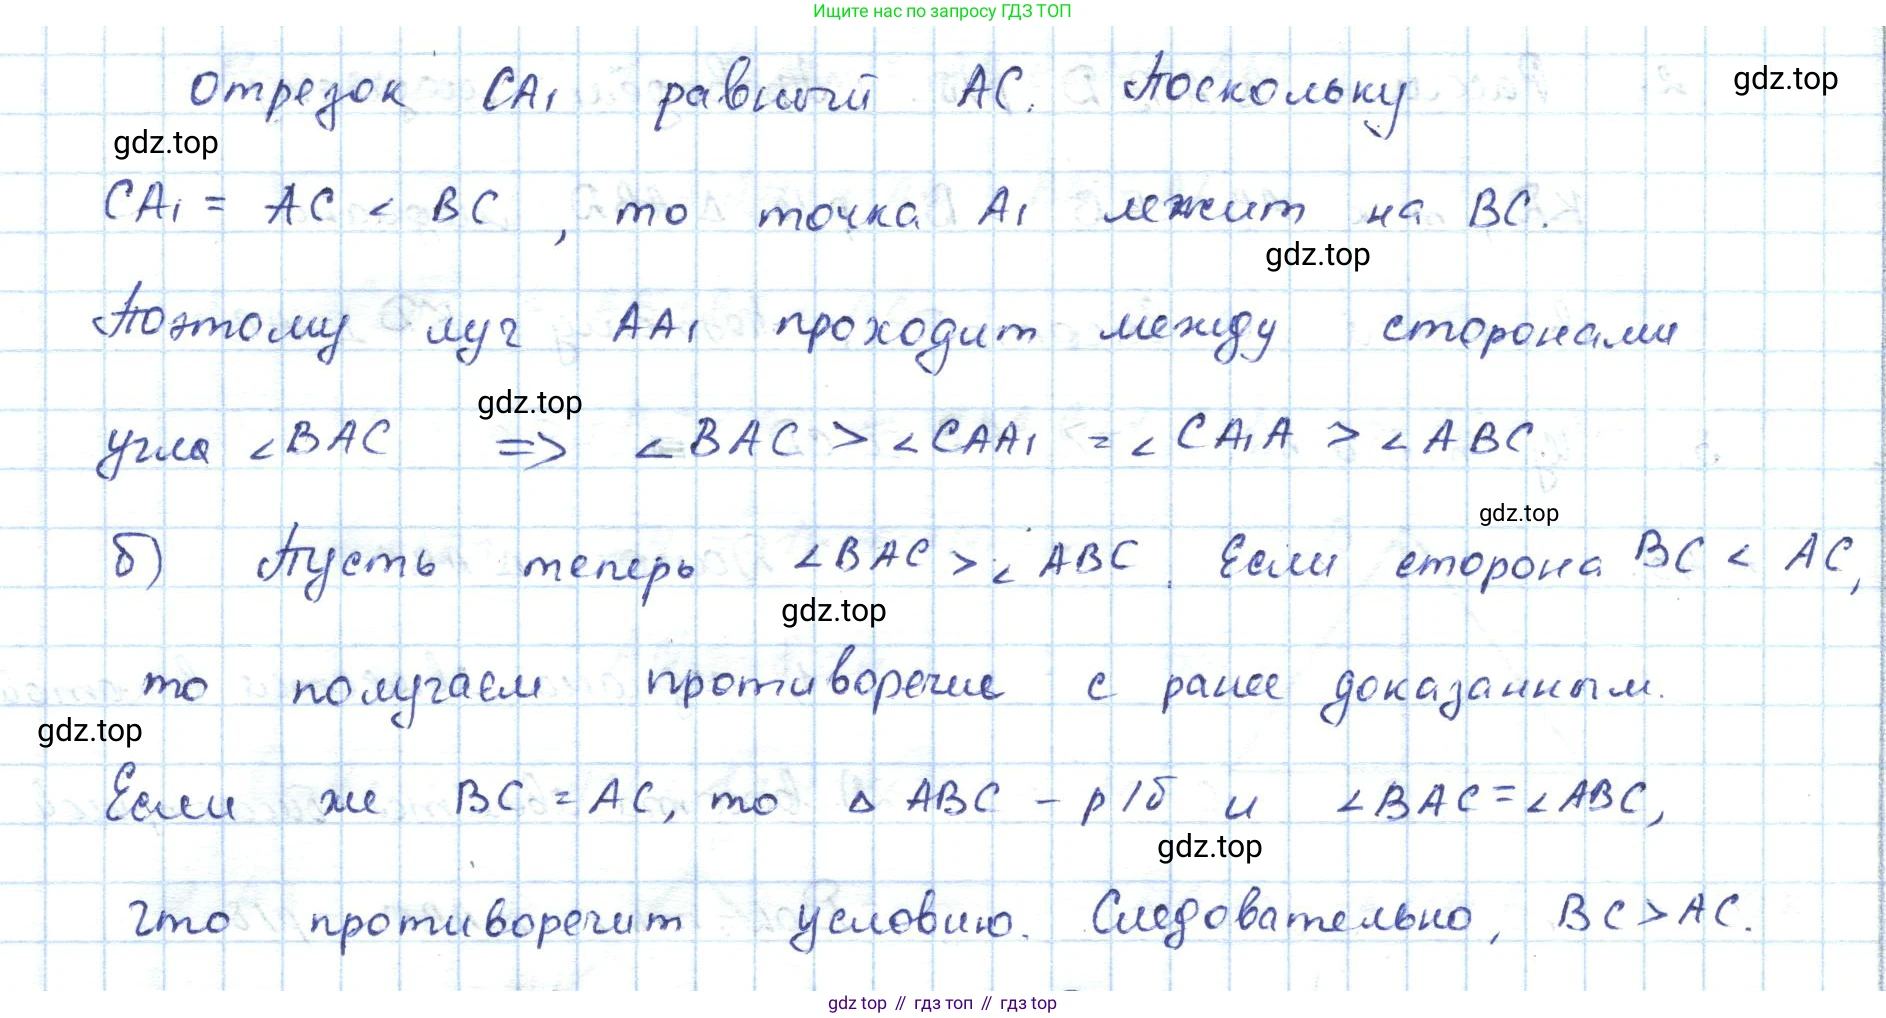 Ищите нас по запросу ГДЗ ТОП
отрезок CA₁ равный AC. Поскольку
gdz.top
gdz.top
CA₁ = AC < BC, то точка A₁ лежит на BC.
gdz.top
Поэтому луч AA₁ проходит между сторонами
gdz.top
угла ∠BAC => ∠BAC > ∠CAA₁ = ∠CA₁A > ∠ABC
gdz.top
б) Пусть теперь ∠BAC > ∠ABC. Если сторона BC < AC,
gdz.top
то получаем противоречие с ранее доказанным.
gdz.top
Если же BC = AC, то △ABC – р/б и ∠BAC = ∠ABC,
gdz.top
что противоречит условию. Следовательно, BC > AC.
gdz top // гдз топ // гдз top